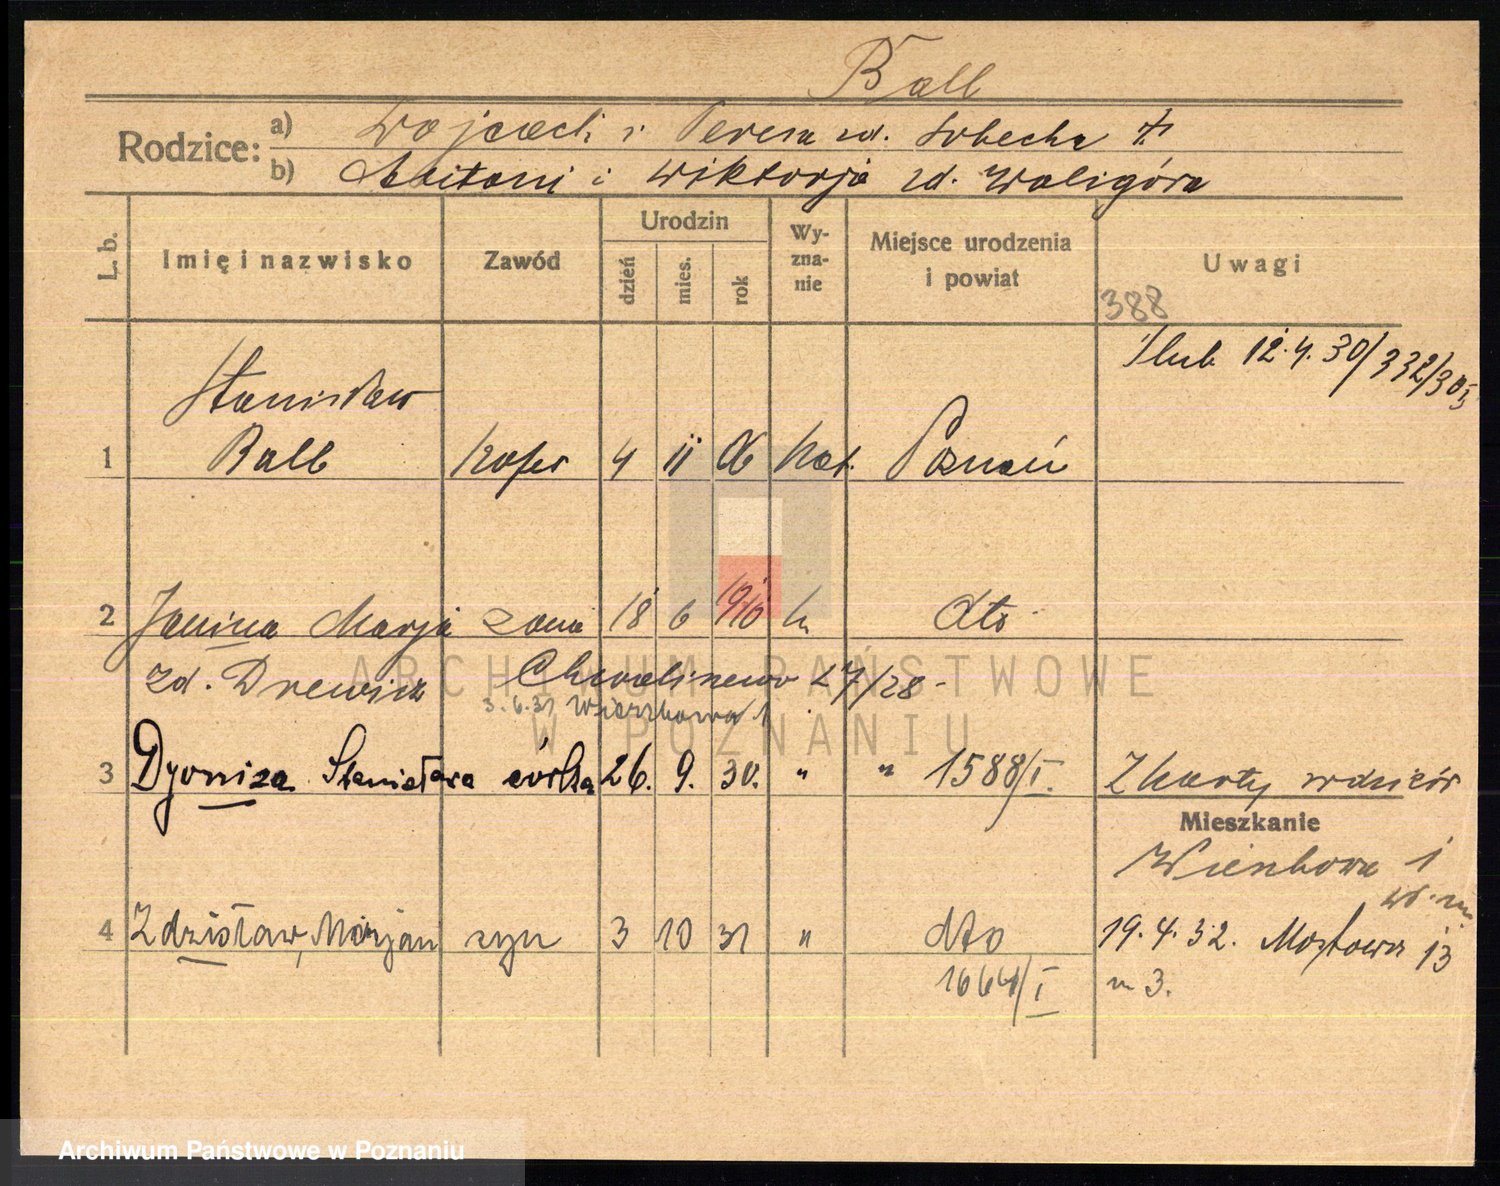 Ball
Rodzice: a) Wojciech i Teresa zd. Sobecka
b) Antoni i Wiktorja zd. Waligóra
L. b.
Imię i nazwisko
Zawód
Urodzin
dzień
mies.
rok
Wy-
zna-
nie
Miejsce urodzenia
i powiat
Uwagi
388
Ślub 12.4.30/332/30I
Stanisław
1 Ball 4 11 06 kat. Poznań
2 Janina Marja żona 18 6 1910 k dto
zd. Drewicz 27/28 -
3.6.31 Wierzbowa 1
3 Dyoniza Stanisława córka 26. 9. 30. " " 1588/I. Z karty rodziców
Mieszkanie
Wierzbowa 1
4 Zdzisław, Marjan syn 3 10 31 " dto 19.4.32. Mostowa 13
1664/I m 3.
ARCHIWUM PAŃSTWOWE
W POZNANIU
Archiwum Państwowe w Poznaniu